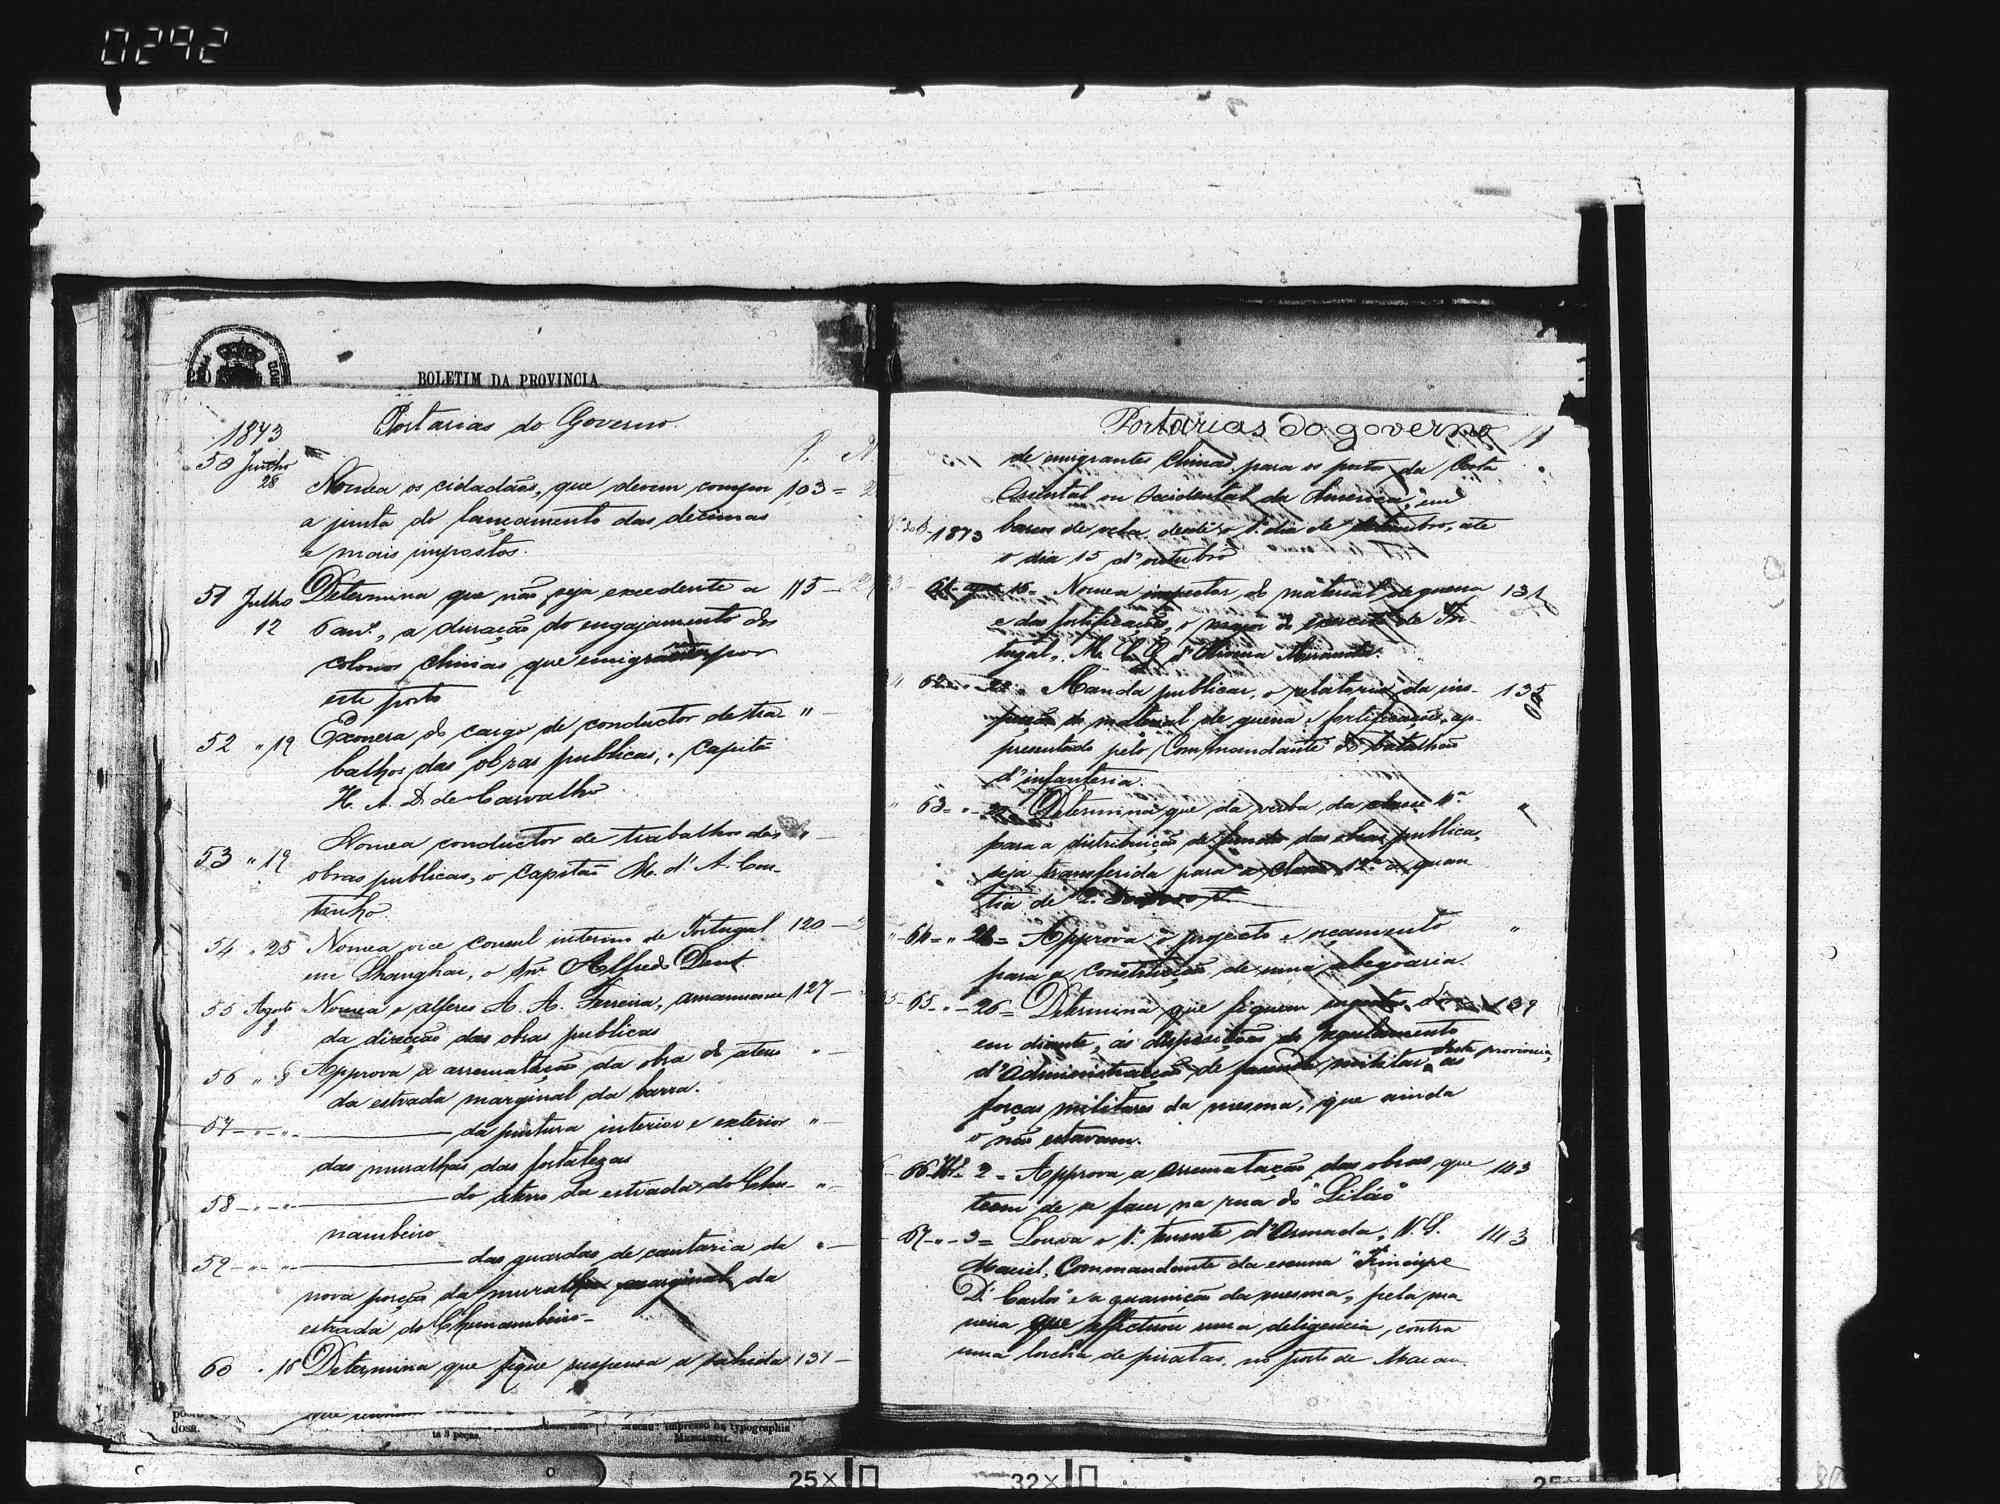 0292
BOLETIM DA PROVINCIA
1873 Portarias do Governo.
50 Junho 28 Nomea os cidadãos, que devem compor 103 =
a junta do lançamento das decimas
e mais impostos.
51 Julho 12 Determina que não seja excedente a 115 -
6 ann.s, a duração do engajamento dos
colonos chinas que emigrarem por
este porto
52 " 19 Exonera do cargo de conductor de tra- " -
balhos das obras publicas, o capitão
H. A. D. de Carvalho
53 " 19 Nomea conductor de trabalhos das " -
obras publicas, o capitão M. d'A. Cou-
tinho.
54 " 25 Nomea vice consul interino de Portugal 120 -
em Shanghai, o Snr. Alfred Dent.
55 Agosto 8 Nomea o alferes A. A. Ferreira, amanuense 127 -
da direcção das obras publicas
56 " 8 Approva a arrematação da obra do aterro " -
da estrada marginal da barra.
57 - " - " - da pintura interior e exterior " -
das muralhas das fortalezas
58 - " - " - do aterro da estrada do Chu- " -
nambeiro
59 - " - " - das guardas de cantaria da " -
nova porção da muralha marginal da
estrada do Chunambeiro -
60 " 16 Determina que fique suspensa a sahida 131 -
Mercantil.
impresso na typographia
Portarias do governo 11
de emigrantes chinas, para os portos da Costa
Oriental ou Occidental da America, em
1873 barcos de vela desde o 1.º dia de setembro, até
o dia 15 d'outubro
61 - 16 - Nomea inspector do material de guerra 131
e das fortificações, o major do exercito de Por-
tugal, M. d'Oliveira Miranda.
" 62 - " - 23 - Manda publicar, o relatorio da ins- 135
pecção do material de guerra e fortificações, ap-
presentado pelo Commandante do batalhão
d'infanteria.
" 63 - " - Determina que da verba da classe 4.ª "
para a distribuição de fundos das obras publicas,
seja transferida para a classe 12.ª a quan-
tia de
" - 64 - " 23 - Approva o projecto e orçamento "
para a construcção de uma abegoaria.
65 - " - 26 = Determina que fiquem sujeitas, d'ora 139
em diante, ás disposições do regulamento
d'administração de fazenda militar desta provincia, as
forças militares da mesma, que ainda
o não estavam.
66 - 2 - Approva a arrematação das obras que 143
teem de se fazer na rua do "Lilão"
67 - " - 3 = Louva o 1.º tenente d'Armada, 143
Maciel, Commandante da escuna "Principe
D. Carlos" e a guarnição da mesma, pela ma-
neira que effectuou uma deligencia, contra
uma lorcha de piratas, no porto de Macau.
25× 32×